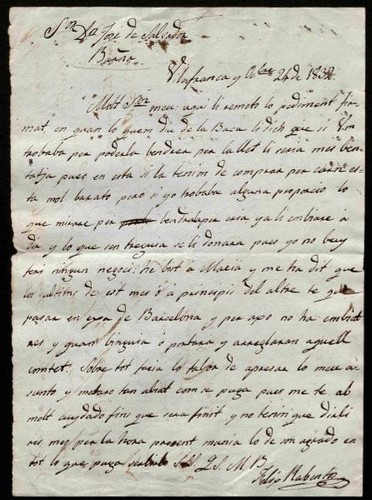 Sor Dn José de Salvador
Vilafranca y 24 de 1832
Molt Sor meu: aqui li remeto lo pediment fir-
mat, en quan lo quem diu de la Baca li dich que si Vm
trobaba per poderla bendrer per la llet li seria mes ben-
tatja pues en esta si la tenim de comprar per carn
ta mol barato pero si yo trobaba alguna proporcio lo
que mirare per bendrela per cria ya li enbiare a
dir y lo que sen tregues se li donara pues yo no bey
ters ningun negoci. he bist a Maria y me ha dit que
los ultims de est mes ó á principis del altre te que
pasar en eixa de Barcelona y per axo no ha embiat
res y quan bingues o portara y arreglaran aquell
comtet. Sobre tot fasia lo fabor de apresar lo meu a-
sunto y mataro tan abiat com se puga pues me te ab
molt cuydado fins que sera finit y no tenim que dirli
res mes per la hora present mania lo de un agrado en
tot lo que puga S.S.S. Q.S.M.B.
Felip